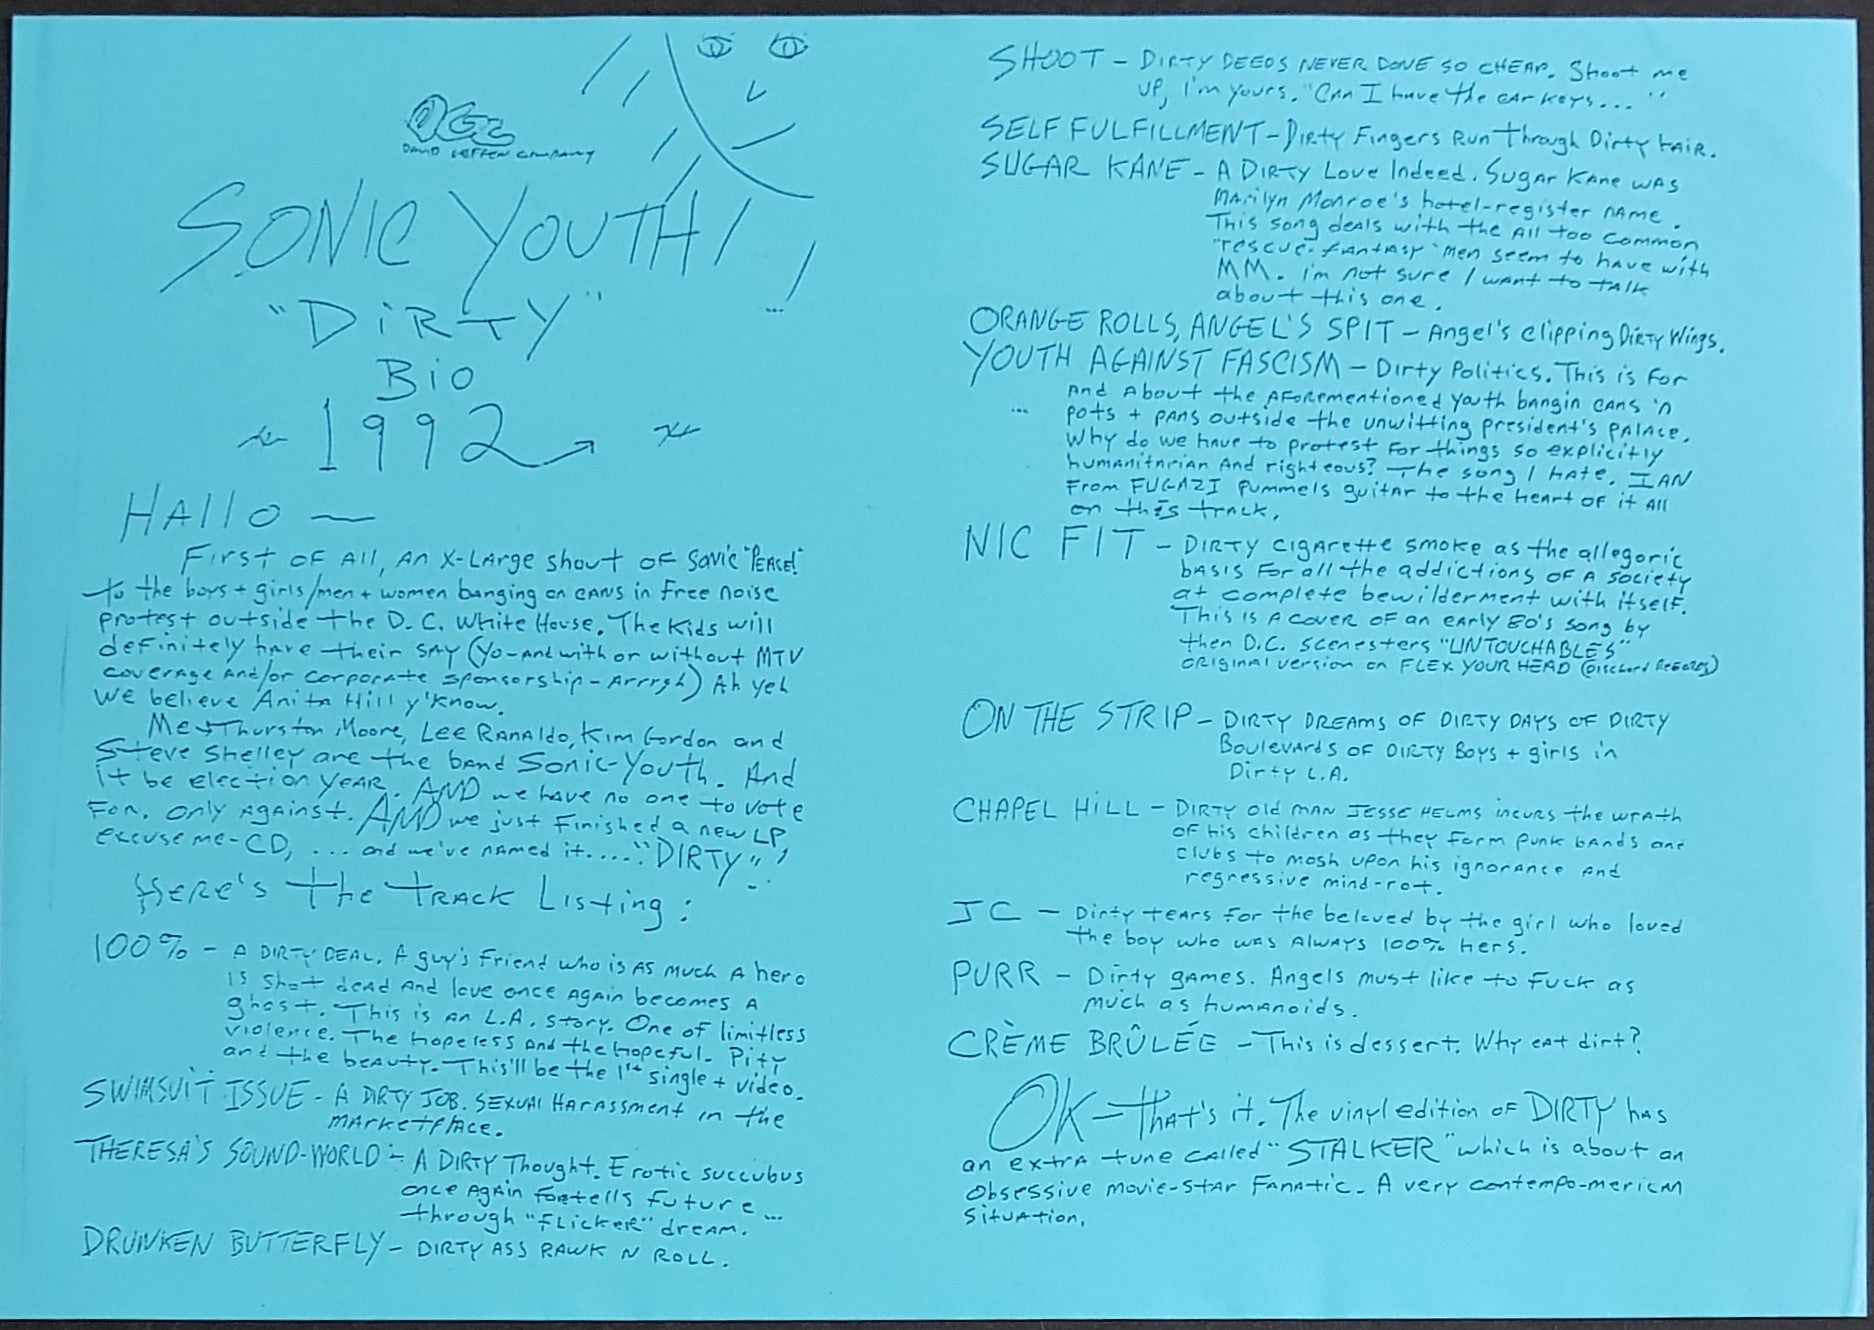 DGC
DAVID GEFFEN COMPANY
SONIC YOUTH!
"DIRTY"
BIO
1992
HALLO —
FIRST OF ALL, AN X-LARGE shout OF SONIC "PEACE!"
to the boys + girls/men + women banging on cans in free noise
protest outside the D.C. White House. The Kids will
definitely have their say (Yo-And with or without MTV
coverage and/or corporate sponsorship - Arrrgh) Ah yeh
we believe Anita Hill y'know.
Me Thurston Moore, Lee Ranaldo, Kim Gordon and
Steve Shelley are the band Sonic-Youth. And
it be election year. AND we have no one to vote
for. Only against. AND we just finished a new LP,
excuse me-CD, ... and we've named it...."DIRTY"
HERE'S THE TRACK LISTING:
100% - A DIRTY DEAL. A guy's friend who is as much a hero
is shot dead and love once again becomes a
ghost. This is an L.A. story. One of limitless
violence. The hopeless and the hopeful. Pity
and the beauty. This'll be the 1st single + video.
SWIMSUIT ISSUE - A DIRTY JOB. SEXUAL HARASSMENT in the
marketplace.
THERESA'S SOUND-WORLD - A DIRTY Thought. Erotic succubus
once again fortells future ...
through "FLICKER" dream.
DRUNKEN BUTTERFLY - DIRTY ASS RAWK N ROLL.
SHOOT - DIRTY DEEDS NEVER DONE SO CHEAP. Shoot me
up, I'm yours. "Can I have the car keys..."
SELF FULFILLMENT - Dirty Fingers Run Through Dirty Hair.
SUGAR KANE - A DIRTY Love Indeed. Sugar Kane was
Marilyn Monroe's hotel-register name.
This song deals with the all too common
"rescue-fantasy" men seem to have with
MM. I'm not sure I want to talk
about this one.
ORANGE ROLLS, ANGEL'S SPIT - Angel's clipping Dirty Wings.
YOUTH AGAINST FASCISM - Dirty Politics. This is for
and about the aforementioned youth bangin cans 'n
... pots + pans outside the unwitting president's palace.
Why do we have to protest for things so explicitly
humanitarian and righteous? The song I hate. IAN
from FUGAZI pummels guitar to the heart of it all
on this track.
NIC FIT - DIRTY cigarette smoke as the allegoric
basis for all the addictions of a society
at complete bewilderment with itself.
This is a cover of an early 80's song by
then D.C. scenesters "UNTOUCHABLES"
original version on FLEX YOUR HEAD (Dischord Records)
ON THE STRIP - DIRTY DREAMS OF DIRTY DAYS OF DIRTY
Boulevards OF DIRTY Boys + girls in
Dirty L.A.
CHAPEL HILL - DIRTY old man JESSE HELMS incurs the wrath
of his children as they form punk bands and
clubs to mosh upon his ignorance and
regressive mind-rot.
JC - Dirty tears for the beloved by the girl who loved
the boy who was always 100% hers.
PURR - Dirty games. Angels must like to fuck as
much as humanoids.
CRÈME BRÛLÉE - This is dessert. Why eat dirt?
OK - that's it. The vinyl edition of DIRTY has
an extra tune called "STALKER" which is about an
obsessive movie-star fanatic. A very contempo-merican
situation.